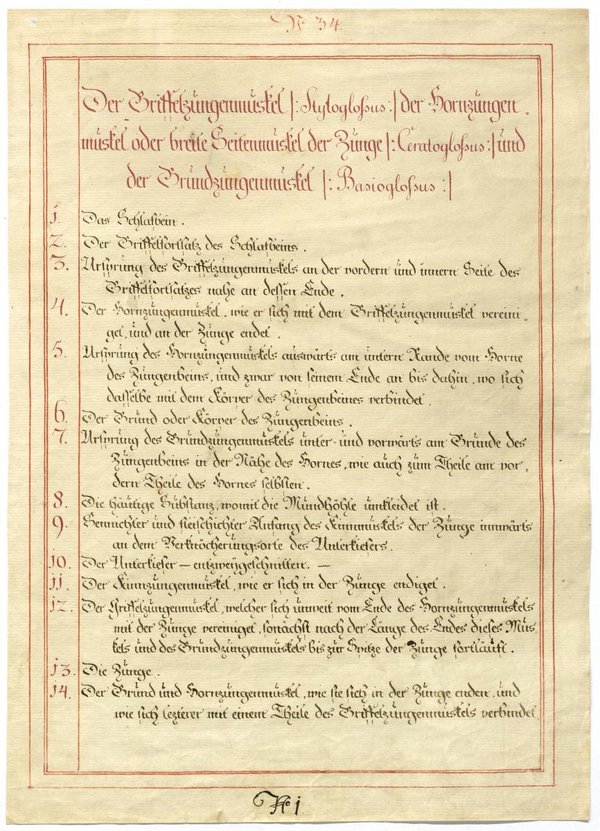 N: 34.
Der Griffelzungenmuskel |: Styloglossus :| der Hornzungen=
muskel oder breite Seitenmuskel der Zunge |: Ceratoglossus :| und
der Grundzungenmuskel |: Basioglossus :|
1. Das Schlafbein.
2. Der Griffelfortsatz des Schlafbeins.
3. Ursprung des Griffelzungenmuskels an der vordern und innern Seite des
Griffelfortsatzes nahe an dessen Ende.
4. Der Hornzungenmuskel, wie er sich mit dem Griffelzungenmuskel vereini=
get, und an der Zunge endet.
5. Ursprung des Hornzungenmuskels auswärts am untern Rande vom Horne
des Zungenbeins, und zwar von seinem Ende an bis dahin, wo sich
dasselbe mit dem Körper des Zungenbeines verbindet.
6. Der Grund oder Körper des Zungenbeins.
7. Ursprung des Grundzungenmuskels unter- und vorwärts am Grunde des
Zungenbeins in der Nähe des Hornes, wie auch zum Theile am vor=
dern Theile des Hornes selbsten.
8. Die häutige Substanz, womit die Mundhöhle umkleidet ist.
9. Sennichter und fleischichter Anfang des Kinnmuskels der Zunge innwärts
an dem Verknöcherungsorte des Unterkiefers.
10. Der Unterkiefer — entzweygeschnitten. —
11. Der Kinnzungenmuskel, wie er sich in der Zunge endiget.
12. Der Griffelzungenmuskel, welcher sich unweit vom Ende des Hornzungenmuskels
mit der Zunge vereiniget, sonächst nach der Länge des Endes dieses Mus=
kels und des Grundzungenmuskels bis zur Spitze der Zunge fortläuft.
13. Die Zunge.
14. Der Grund und Hornzungenmuskel, wie sie sich in der Zunge enden, und
wie sich lezterer mit einem Theile des Griffelzungenmuskels verbindet